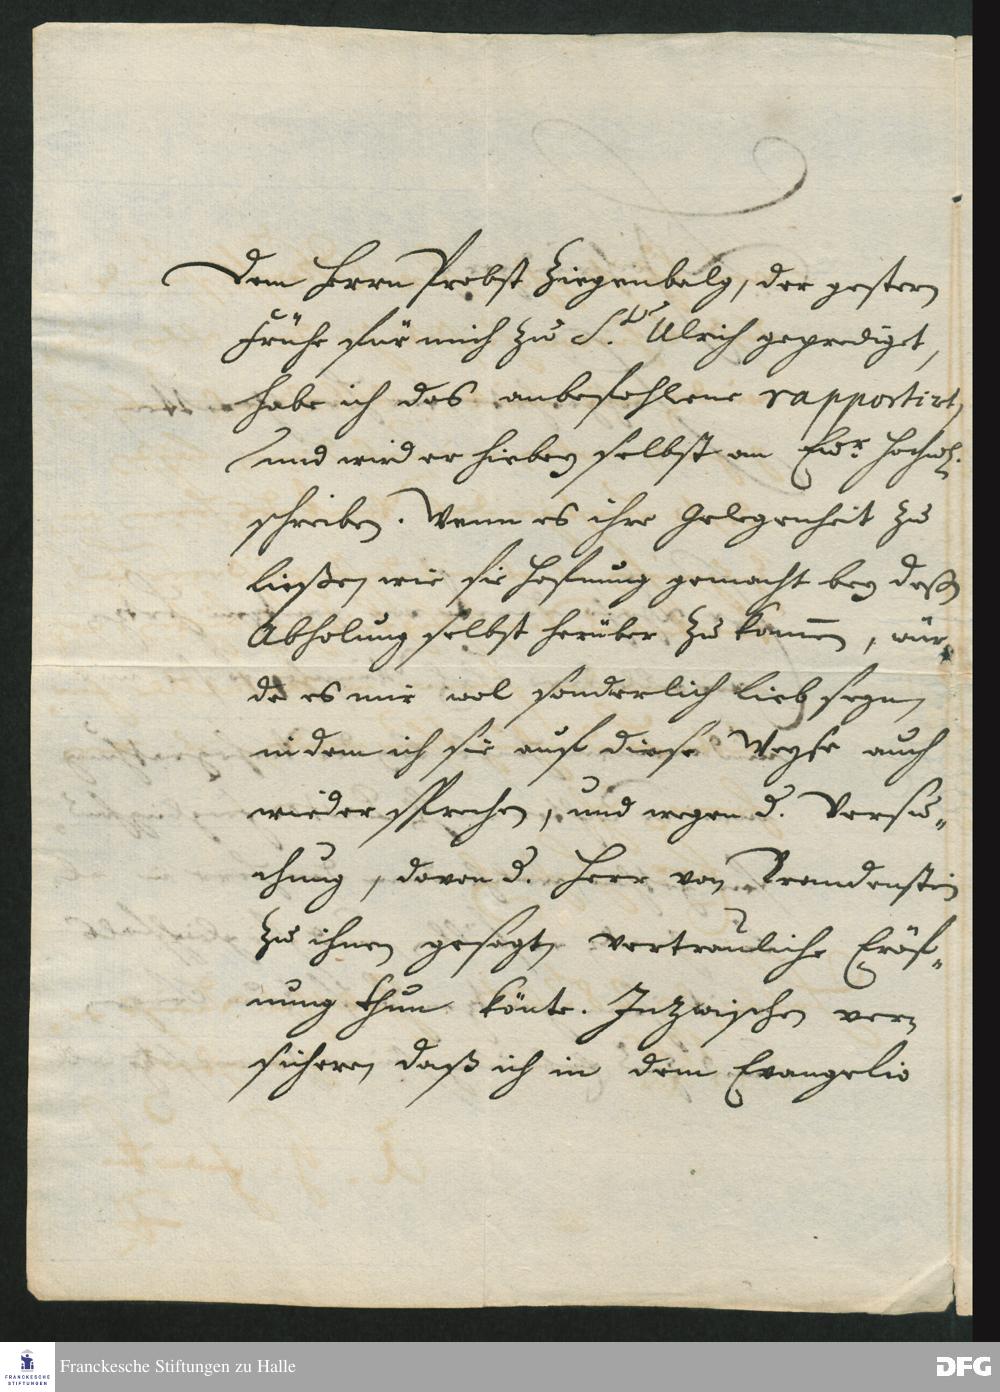 Dem Herrn Probst Ziegenbalg, der gestern
Frühe für mich zu S. Ulrich geprediget,
habe ich das anbefohlene rapportirt,
und wird er hiebey selbst an Ewr Hochw.
schreiben. Wenn es ihre Gelegenheit zu
ließe, wie sie Hofnung gemacht bey deßen
Abholung selbst herüber zu kommen, wür-
de es mir wol sonderlich lieb seyn,
indem ich sie auf diese Weyse auch
wieder sprechen, und wegen d. Versu-
chung, davon d. Herr von Brandenstein
zu ihnen gesagt, vertrauliche Eröf-
nung thun könte. Inzwischen ver-
sichere, daß ich in dem Evangelio
Franckesche Stiftungen zu Halle
FRANCKESCHE
STIFTUNGEN
DFG